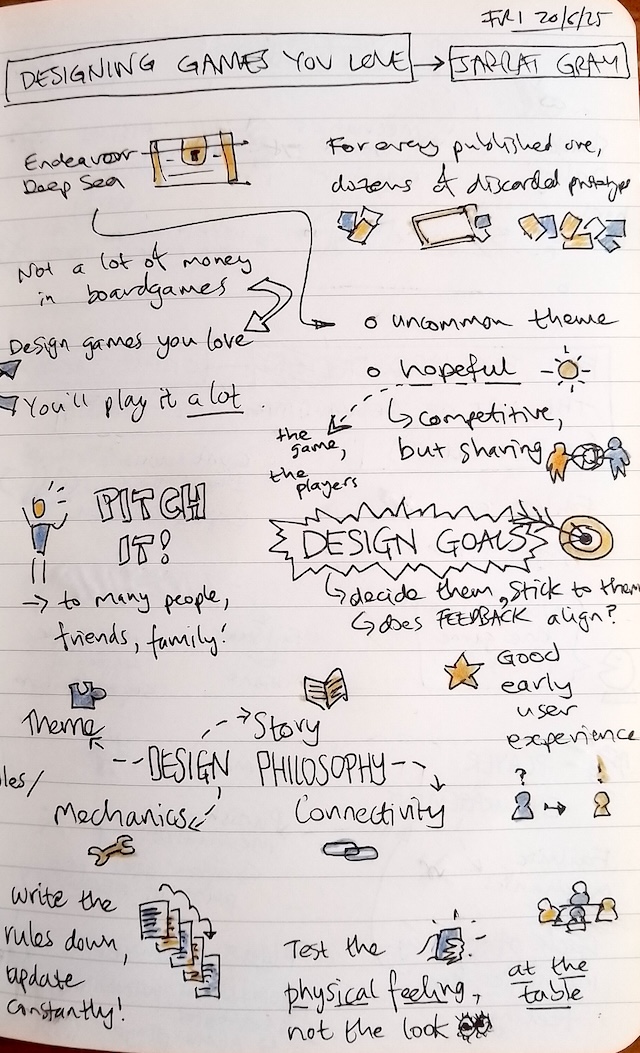 FRI 20/6/25
DESIGNING GAMES YOU LOVE → JARRAT GRAY
Endeavour
Deep Sea
For every published one,
dozens of discarded prototype
Not a lot of money
in boardgames
Design games you love
You'll play it a lot
o uncommon theme
o hopeful
↳ competitive,
but sharing
the
game,
the
players
PITCH
IT!
→ to many people,
friends, family!
DESIGN GOALS
↳ decide them, stick to them
↳ does FEEDBACK align?
Good
early
user
experience
? !
Theme
Story
DESIGN PHILOSOPHY
les/
Mechanics
Connectivity
Write the
rules down,
update
constantly!
Test the
physical feeling,
not the look
at the
table